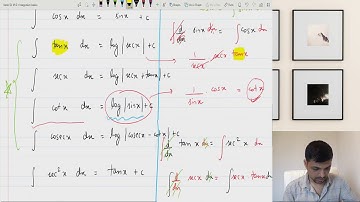 ∫ cosx dx = sinx + c
∫ tanx dx = log|secx| + c
∫ secx dx = log|secx + tanx| + c
∫ cotx dx = log|sinx| + c
∫ cosecx dx = log|cosecx - cotx| + c
∫ sec²x dx = tanx + c
∫ d/dx sinx dx = ∫ cosx dx
1/secx secx tanx
1/sinx cosx = cotx
d/dx tanx dx = ∫ sec²x dx
∫ d/dx secx dx = ∫ secx tanx dx